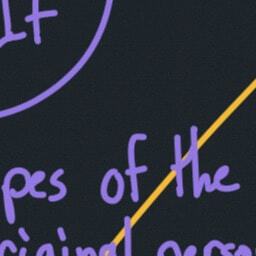 If
pes of the
riginal perso